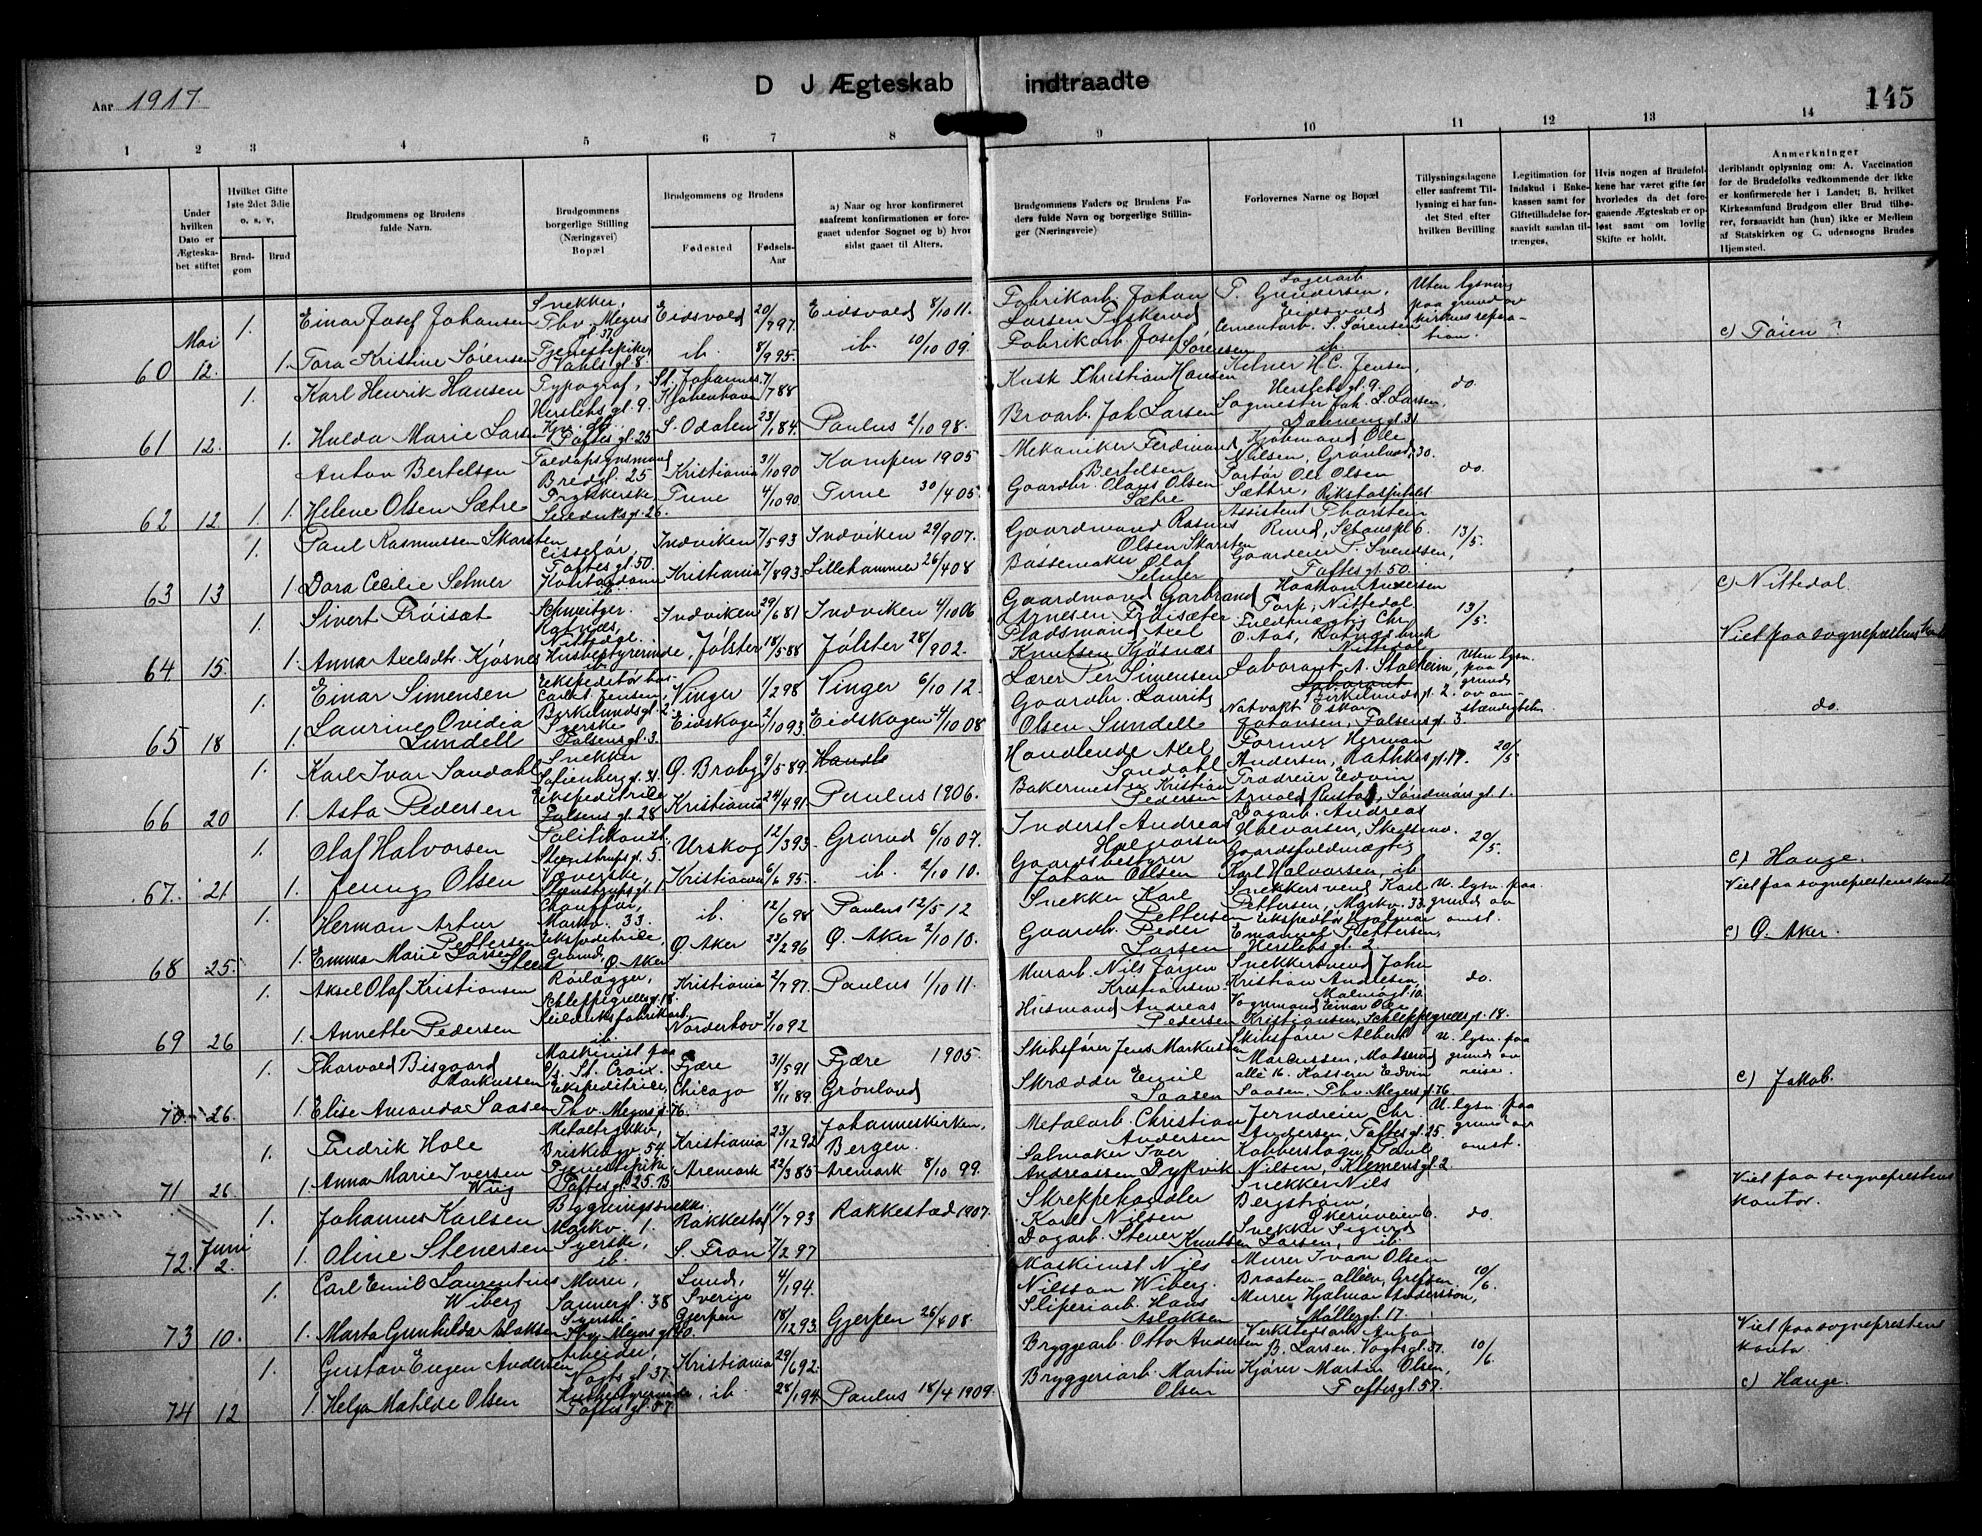 Aar 1917.
D J Ægteskab indtraadte
145
1 2 3 4 5 6 7 8 9 10 11 12 13 14
Under hvilken Dato er Ægteskabet stiftet
Hvilket Gifte 1ste 2det 3die o. s. v.
Brudgom
Brud
Brudgommens og Brudens fulde Navn.
Brudgommens borgerlige Stilling (Næringsvei) Bopæl
Brudgommens og Brudens
Fødested
Fødsels-Aar
a) Naar og hvor konfirmeret saafremt konfirmationen er foregaaet udenfor Sognet og b) hvor sidst gaaet til Alters.
Brudgommens Faders og Brudens Faders fulde Navn og borgerlige Stillinger (Næringsveie)
Forlovernes Navne og Bopæl
Tillysningsdagene eller saafremt Tillysning ei har fundet Sted efter hvilken Bevilling
Legitimation for Indskud i Enkekassen samt for Giftetilladelse forsaavidt saadan tiltrænges.
Hvis nogen af Brudefolkene har været gift før hvorledes da det foregaaende Ægteskab er opløst samt om lovlig Skifte er holdt.
Anmerkninger deriblandt oplysning om: A. Vaccination for de Brudefolks vedkommende der ikke er konfirmerede her i Landet; B. hvilket Kirkesamfund Brudgom eller Brud tilhører, forsaavidt han (hun) ikke er Medlem af Statskirken og C. udensogns Brudes Hjemsted.
Mai 1. Einar Josef Johansen Snekker, Thv. Meyers gt. 37 Eidsvold 20/7 97. Eidsvold 8/10 11. Fabrikarb. Johan Larsen Piskerud P. Gundersen, Eidsvold Uten lysning paa grund av kirkens reparation.
60 12. 1. Tora Kristine Sørensen Tjenestepike Vahls gt. 8. ib. 8/9 95. ib. 10/10 09. Fabrikarb. Josef Sørensen Cementarb. S. Sørensen ib. c) Tøien?
1. Karl Henrik Hansen Typograf, Herslebs gt. 9. St. Johannes, Kjøbenhavn 7/7 88 Kusk Christian Hansen Kelner H. C. Jensen, Herslebs gt. 9. do.
61 12. 1. Hulda Marie Larsen Toftes gt. 25 S. Odalen 23/1 84. Paulus 2/10 98. Broarb. Joh. Larsen Sagmester Joh. L. Larsen, Dælenenggt. 31.
Anton Bertelsen Toldopsynsmand Bredgt. 25 Kristiania 31/10 90 Kampen 1905 Mekaniker Ferdinand Bertelsen Kjøbmand Ole Nilsen, Grønland 30. do.
62 12 1. 1. Helene Olsen Sætre Trykkerske, Seilduksgt. 26. Tune 4/10 90. Tune 30/4 05. Gaardbr. Olaus Olsen Sætre Portør Ole Olsen Sættre, Rikshospitalet
1. Paul Rasmussen Skarsten Cisselør, Toftes gt. 50. Indviken 7/5 93 Indviken 29/9 07. Gaardmand Rasmus Olsen Skarsten Assistent Thorstein Ruud, Schous pl. 6. 13/5.
63 13 1. Dora Cecilie Selmer Kontordame ib. Kristiania 7/8 93. Lillehammer 26/4 08 Bøssemaker Olaf Selmer Gaardeier P. Svendsen, Toftes gt. 50.
1. Sivert Frøisæt Schweitzer, Rotnæs, Nittedal. Indviken 29/6 81 Indviken 4/10 06 Gaardmand Garbrand Arnesen Frøisæter Haakon Andersen Torp, Nittedal. 13/5. c) Nittedal
64 15. 1. Anna Axelsdtr. Kjøsnes Husbestyrerinde, ib. Jølster 18/5 88 Jølster 28/9 02. Pladsmand Axel Knutsen Kjøsnæs Fuldmægtig Chr. O. Aas, Rotnæs bruk Nittedal Viet paa sogneprestens kontor
1. Einar Simensen Ekspeditør hos Carl Jensen, Birkelunds gt. 2. Vinger 1/2 98 Vinger 6/10 12. Lærer Per Simensen Laborant A. Stalheim, Birkelunds gt. 2. Uten lysn. paa grund av omstændigheter
65 18 1. Laurine Ovidia Lundell Syerske Falsens gt. 3. Eidskogen 2/10 93. Eidskogen 4/10 08 Gaardbr. Laurits Olsen Lundell Natvagt Oskar Johansen, Falsens gt. 3 do.
1. Karl Ivar Sandahl Snekker Sofienberg gt. 31. Ø. Broby 9/5 89. Handlende Axel Sandahl Former Herman Andersen, Rathkes gt. 17. 20/5
66 20 1. Asta Pedersen Ekspeditrice Falsens gt. 28 Kristiania 24/4 91 Paulus 1906. Bakermester Kristian Pedersen Trædreier Edvin Arnold Rustad, Søndmørs gt. 1.
1. Olaf Halvorsen Politikonst., Steenstrups gt. 5. Urskog 12/3 93. Grorud 6/10 07. Inderst Andreas Halvorsen Dagarb. Andreas Halvorsen, Skedsmo. 20/5.
67. 21 1. Jenny Olsen Væverske, Steenstrups gt. 1 Kristiania 6/6 95. ib. 2/10 10. Gaardsbestyrer Johan Olsen Gaardsfuldmægtig Karl Halvorsen, ib. c) Hauge.
1. Herman Artur Pettersen Chauffør, Markv. 33. ib. 12/6 98 Paulus 12/5 12 Snekker Karl Pettersen Snekkersvend Karl Pettersen, Markv. 33. U. lysn. paa grund av omst. Viet paa sogneprestens kontor
68 25. 1. Emma Marie Larsen Ekspeditrice, Grorud, Ø. Aker Ø. Aker 22/2 96 Ø. Aker 2/10 10. Gaardbr. Peder Larsen Ekspeditør Hjalmar Emanuel Pettersen, Herslebs gt. 2 c) Ø. Aker.
1. Aksel Olaf Kristiansen Rørlægger, Schleppegrells gt. 18. Kristiania 2/7 97. Paulus 1/10 11. Murarb. Nils Jørgen Kristiansen Snekkersvend John Kristian Andresen, Malmøgt. 10. do.
69 26 1. Annette Pedersen Seilduksfabrikarb. ib. Norderhov 3/10 92 Husmand Andreas Pedersen Vognmand Einar Olaf Kristiansen, Schleppegrells gt. 18.
1. Thorvald Bisgaard Markussen Maskinist paa S/s. St. Croix. Fjære 31/5 91 Fjære 1905. Skibsfører Jens Markussen Skibsfører Albert Marcussen, Madserud allé 16. U. lysn. paa grund av reise.
70 26. 1. Elise Amanda Saasen Ekspeditrice, Thv. Meyers gt. 76. Chicago 8/11 89. Grønland Skrædder Emil Saasen Kasserer Edvin Saasen, Thv. Meyers gt. 76 c) Jakob.
1. Fredrik Hole Metaltrykker, Briskebyv. 54 Kristiania 23/12 92 Johanneskirken, Bergen. Metalarb. Christian Andersen Jerndreier Chr. Andersen, Toftes gt. 25 U. lysn. paa grund av omst.
71 26 1. Anna Marie Iversen Wiig Tjenestepike Toftes gt. 25 B Aremark 22/3 85 Aremark 8/10 99. Salmaker Iver Andreassen Dypvik Kobberslager Paul Nilsen, Klemens gt. 2
1. Johannes Karlsen Bygningssnekk. Markv. 1. Rakkestad 11/7 93 Rakkestad 1907. Skreppehandler Karl Nilsen Snekker Nils Bergstrøm, Økernveien 6. do. Viet paa sogneprestens kontor.
72. Juni 2. 1. Oline Stenersen Syerske, ib. S. Fron 7/2 97 Dagarb. Stener Knutsen Snekker Sigurd Larsen, ib.
1. Carl Emil Laurentius Wiberg Murer, Sannergt. 38 Lund, Sverige 4/1 94. Maskinist Nils Nilsson Wiberg. Murer Ivan Olsen Braaten-alléen, Grefsen. 10/6.
73 10. 1. Marta Gunhilda Aslaksen Syerske Thv. Meyers gt. 40. Gjerpen 18/12 93 Gjerpen 26/4 08. Sliperiarb. Hans Aslaksen Murer Hjalmar Andersson, Møllergt. 17.
1. Gustav Eugen Andersen Arbeider, Vogts gt. 37. Kristiania 29/6 92. Bryggearb. Otto Andersen Verkstedsarb. Anton B. Larsen, Vogts gt. 37. 10/6. Viet paa sogneprestens kontor
74 12 1. Helga Matilde Olsen Husbestyrerinde, Toftes gt. 57 ib. 28/1 94 Paulus 18/4 1909. Bryggeriarb. Martin Olsen Kjører Martin Olsen, Toftes gt. 57. c) Hauge.